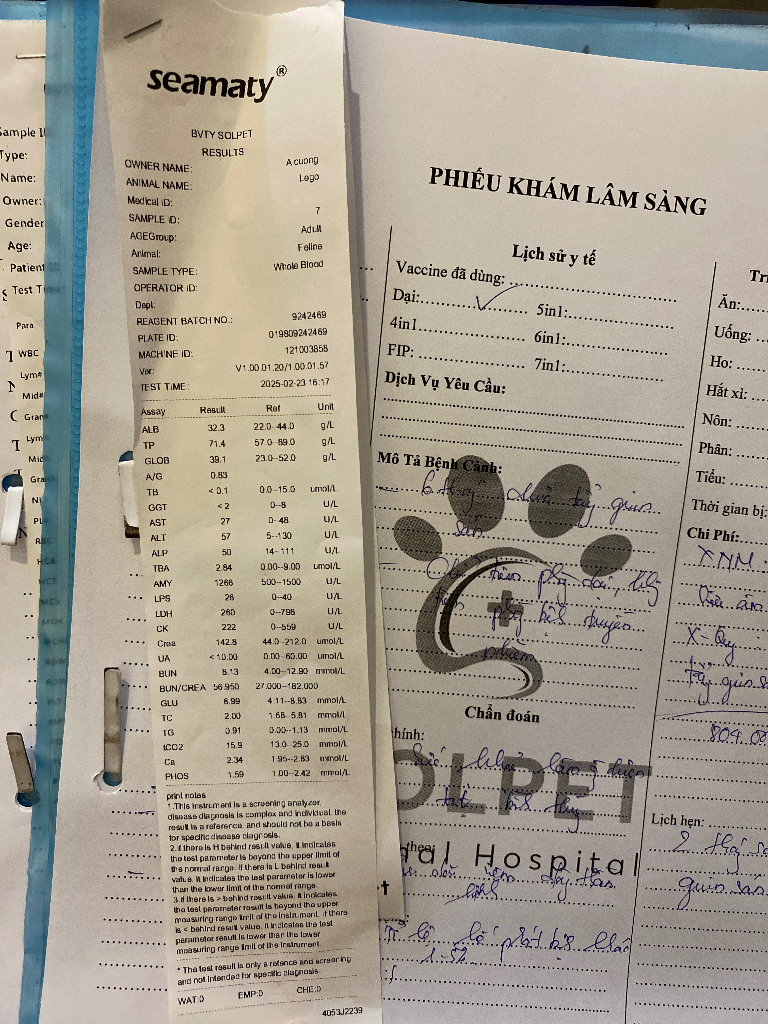 Sample I
Type:
Name:
Owner:
Gender
Age:
Patient ID
Test Time
Para
WBC
Lym#
Mid#
Gran
Lym
Mid
Gra
seamaty®
BVTY SOLPET
RESULTS
OWNER NAME: A cuong
ANIMAL NAME: Lego
Medical ID:
SAMPLE ID: 7
AGEGroup: Adult
Animal: Feline
SAMPLE TYPE: Whole Blood
OPERATOR ID:
Dept:
REAGENT BATCH NO.: 9242469
PLATE ID: 019809242469
MACHINE ID: 121003858
Ver: V1.00.01.20/1.00.01.57
TEST TIME: 2025-02-23 16:17
Assay Result Ref Unit
ALB 32.3 22.0--44.0 g/L
TP 71.4 57.0--89.0 g/L
GLOB 39.1 23.0--52.0 g/L
A/G 0.83
TB < 0.1 0.0--15.0 umol/L
GGT < 2 0--8 U/L
AST 27 0--48 U/L
ALT 57 5--130 U/L
ALP 50 14--111 U/L
TBA 2.84 0.00--9.00 umol/L
AMY 1268 500--1500 U/L
LPS 26 0--40 U/L
LDH 260 0--798 U/L
CK 222 0--559 U/L
Crea 142.8 44.0--212.0 umol/L
UA < 10.00 0.00--60.00 umol/L
BUN 8.13 4.00--12.90 mmol/L
BUN/CREA 56.950 27.000--182.000
GLU 6.99 4.11--8.83 mmol/L
TC 2.00 1.68--5.81 mmol/L
TG 0.91 0.00--1.13 mmol/L
tCO2 15.9 13.0--25.0 mmol/L
Ca 2.34 1.95--2.83 mmol/L
PHOS 1.59 1.00--2.42 mmol/L
print notes
1.This instrument is a screening analyzer,
disease diagnosis is complex and individual, the
result is a reference, and should not be a basis
for specific disease diagnosis.
2.if there is H behind result value, it indicates
the test parameter is beyond the upper limit of
the normal range. if there is L behind result
value. it indicates the test parameter is lower
than the lower limit of the normal range.
3.if there is > behind result value. it indicates
the test parameter result is beyond the upper
measuring range limit of the instrument. if there
is < behind result value. it indicates the test
parameter result is lower than the lower
measuring range limit of the instrument.
* The test result is only a refence and screening
and not intended for specific diagnosis.
WAT:0 EMP:0 CHE:0
4053J2239
PHIẾU KHÁM LÂM SÀNG
Lịch sử y tế
Vaccine đã dùng:
Dại: ✓ 5in1:
4in1 6in1:
FIP: 7in1:
Dịch Vụ Yêu Cầu:
Mô Tả Bệnh Cảnh:
6 tháng chưa tẩy giun
sán
Chẩn đoán
hính:
theo:
OLPET
al Hospital
1-52
Tri
Ăn:
Uống:
Ho:
Hắt xì:
Nôn:
Phân:
Tiểu:
Thời gian bị:
Chi Phí:
XNM
Siêu âm
X-Quy
Tẩy giun sá
Lịch hẹn:
giun sán